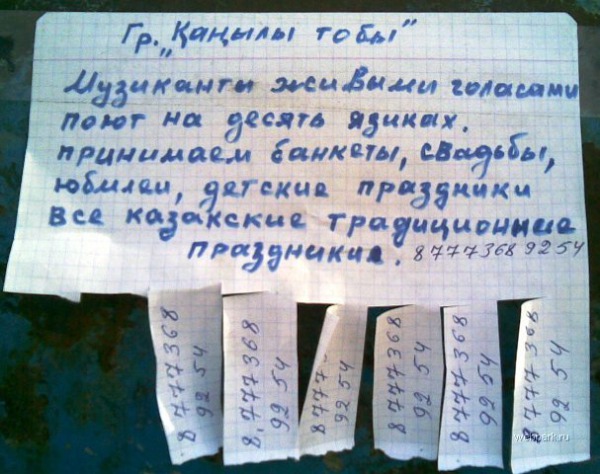 Гр. „Қаңылы тобы"
Музиканты живыми голасами
поют на десять язиках.
принимаем банкеты, свадьбы,
юбилеи, детские праздники
все казакские традиционные
праздники. 8 777 368 92 54
8 777 368
92 54
8.777 368
92 54
8 777
92 54
8 777 368
92 54
8 777 368
92 54
8 777 368
92 54
webpark.ru